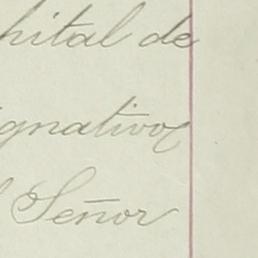 hital de
ignativos
l Señor